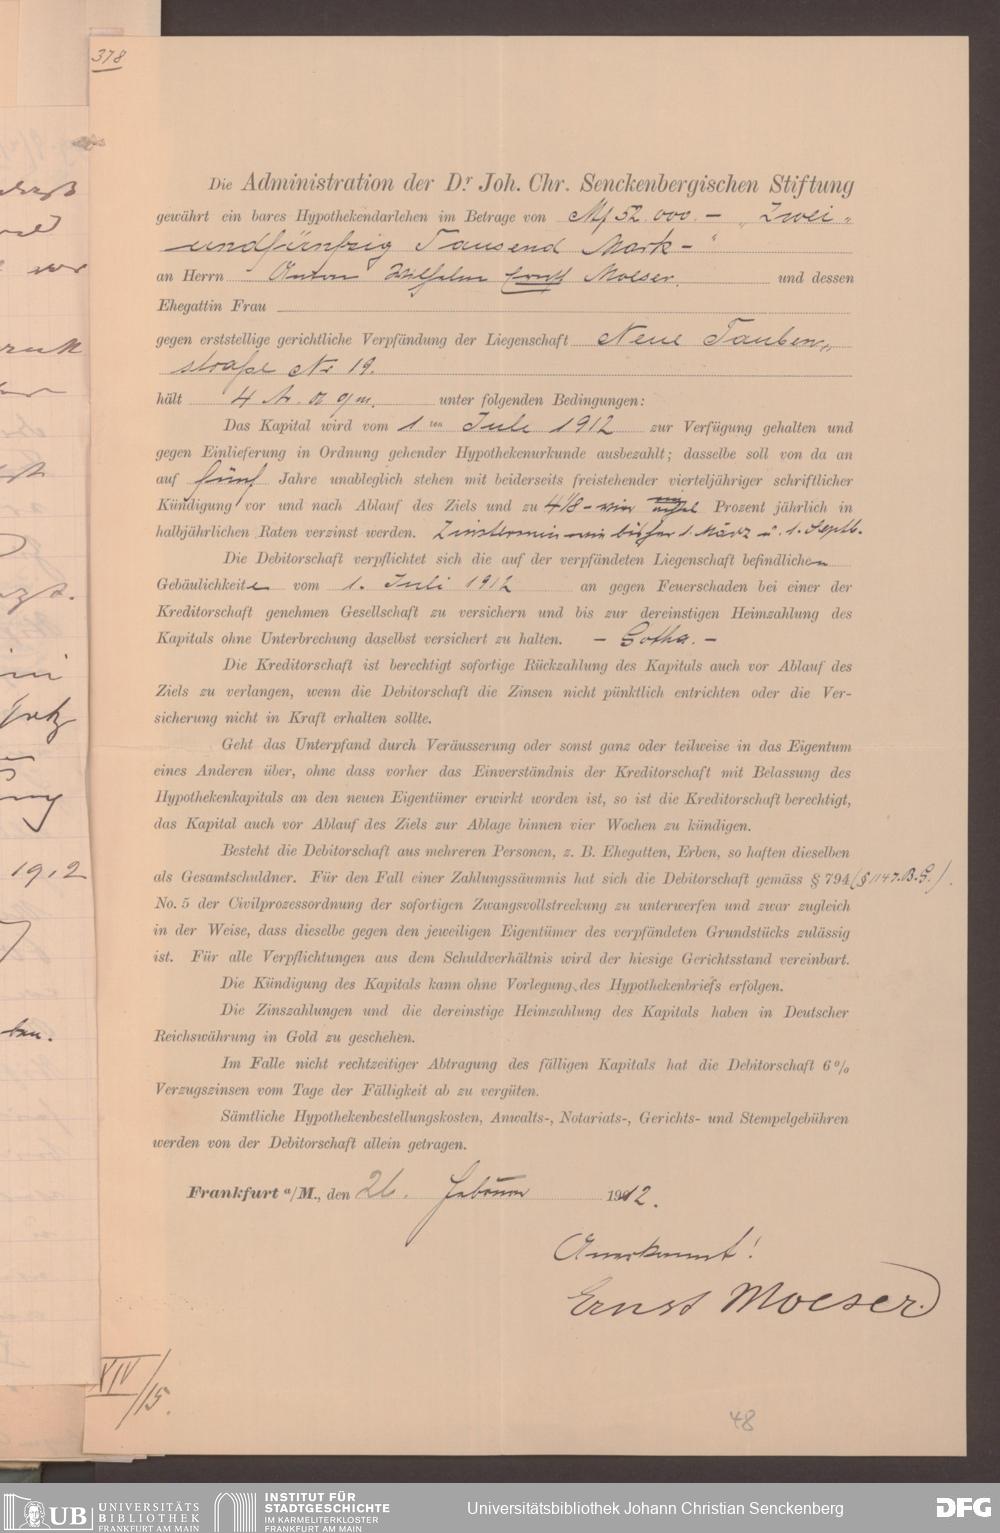 378
Die Administration der Dr Joh. Chr. Senckenbergischen Stiftung
gewährt ein bares Hypothekendarlehen im Betrage von M 52.000.- „Zwei-
undfünfzig Tausend Mark-"
an Herrn Anton Wilhelm Ernst Moeser. und dessen
Ehegattin Frau
gegen erststellige gerichtliche Verpfändung der Liegenschaft Neue Tauben-
straße Nr 19.
hält 4 Ar. 0 qm. unter folgenden Bedingungen:
Das Kapital wird vom 1ten Juli 1912 zur Verfügung gehalten und
gegen Einlieferung in Ordnung gehender Hypothekenurkunde ausbezahlt; dasselbe soll von da an
auf fünf Jahre unableglich stehen mit beiderseits freistehender vierteljähriger schriftlicher
Kündigung vor und nach Ablauf des Ziels und zu 4 1/8 - vier Prozent jährlich in
halbjährlichen Raten verzinst werden. Zinstermin wie bisher 1. März u. 1. Septb.
Die Debitorschaft verpflichtet sich die auf der verpfändeten Liegenschaft befindlichen
Gebäulichkeite vom 1. Juli 1912 an gegen Feuerschaden bei einer der
Kreditorschaft genehmen Gesellschaft zu versichern und bis zur dereinstigen Heimzahlung des
Kapitals ohne Unterbrechung daselbst versichert zu halten. - Gotha. -
Die Kreditorschaft ist berechtigt sofortige Rückzahlung des Kapitals auch vor Ablauf des
Ziels zu verlangen, wenn die Debitorschaft die Zinsen nicht pünktlich entrichten oder die Ver-
sicherung nicht in Kraft erhalten sollte.
Geht das Unterpfand durch Veräusserung oder sonst ganz oder teilweise in das Eigentum
eines Anderen über, ohne dass vorher das Einverständnis der Kreditorschaft mit Belassung des
Hypothekenkapitals an den neuen Eigentümer erwirkt worden ist, so ist die Kreditorschaft berechtigt,
das Kapital auch vor Ablauf des Ziels zur Ablage binnen vier Wochen zu kündigen.
Besteht die Debitorschaft aus mehreren Personen, z. B. Ehegatten, Erben, so haften dieselben
als Gesamtschuldner. Für den Fall einer Zahlungssäumnis hat sich die Debitorschaft gemäss § 794 (§ 1147. B.G.).
No. 5 der Civilprozessordnung der sofortigen Zwangsvollstreckung zu unterwerfen und zwar zugleich
in der Weise, dass dieselbe gegen den jeweiligen Eigentümer des verpfändeten Grundstücks zulässig
ist. Für alle Verpflichtungen aus dem Schuldverhältnis wird der hiesige Gerichtsstand vereinbart.
Die Kündigung des Kapitals kann ohne Vorlegung des Hypothekenbriefs erfolgen.
Die Zinszahlungen und die dereinstige Heimzahlung des Kapitals haben in Deutscher
Reichswährung in Gold zu geschehen.
Im Falle nicht rechtzeitiger Abtragung des fälligen Kapitals hat die Debitorschaft 6 %
Verzugszinsen vom Tage der Fälligkeit ab zu vergüten.
Sämtliche Hypothekenbestellungskosten, Anwalts-, Notariats-, Gerichts- und Stempelgebühren
werden von der Debitorschaft allein getragen.
Frankfurt a/M., den 26. Februar 1912.
Anerkannt!
Ernst Moeser.
XIV/15.
48
1912
UB UNIVERSITÄTS
BIBLIOTHEK
FRANKFURT AM MAIN
INSTITUT FÜR
STADTGESCHICHTE
IM KARMELITERKLOSTER
FRANKFURT AM MAIN
Universitätsbibliothek Johann Christian Senckenberg
DFG